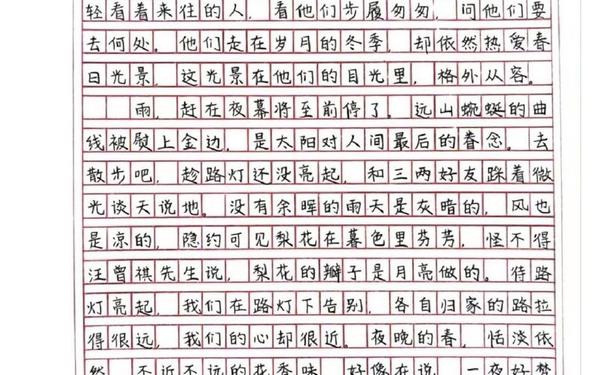 轻看着来往的人，看他们步履匆匆，问他们要
去何处。他们走在岁月的冬季，却依然热爱春
日光景，这光景在他们的目光里，格外从容。
雨，赶在夜幕将至前停了。远山蜿蜒的曲
线被熨上金边，是太阳对人间最后的眷念。去
散步吧，趁路灯还没亮起，和三两好友踩着微
光谈天说地。没有余晖的雨天是灰暗的，风也
是凉的，隐约可见梨花在暮色里芬芳，怪不得
汪曾祺先生说，梨花的瓣子是月亮做的。待路
灯亮起，我们在路灯下告别，各自归家的路拉
得很远，我们的心却很近。夜晚的春，恬淡依
然，不近不远的花香味，好像在说，一夜好梦